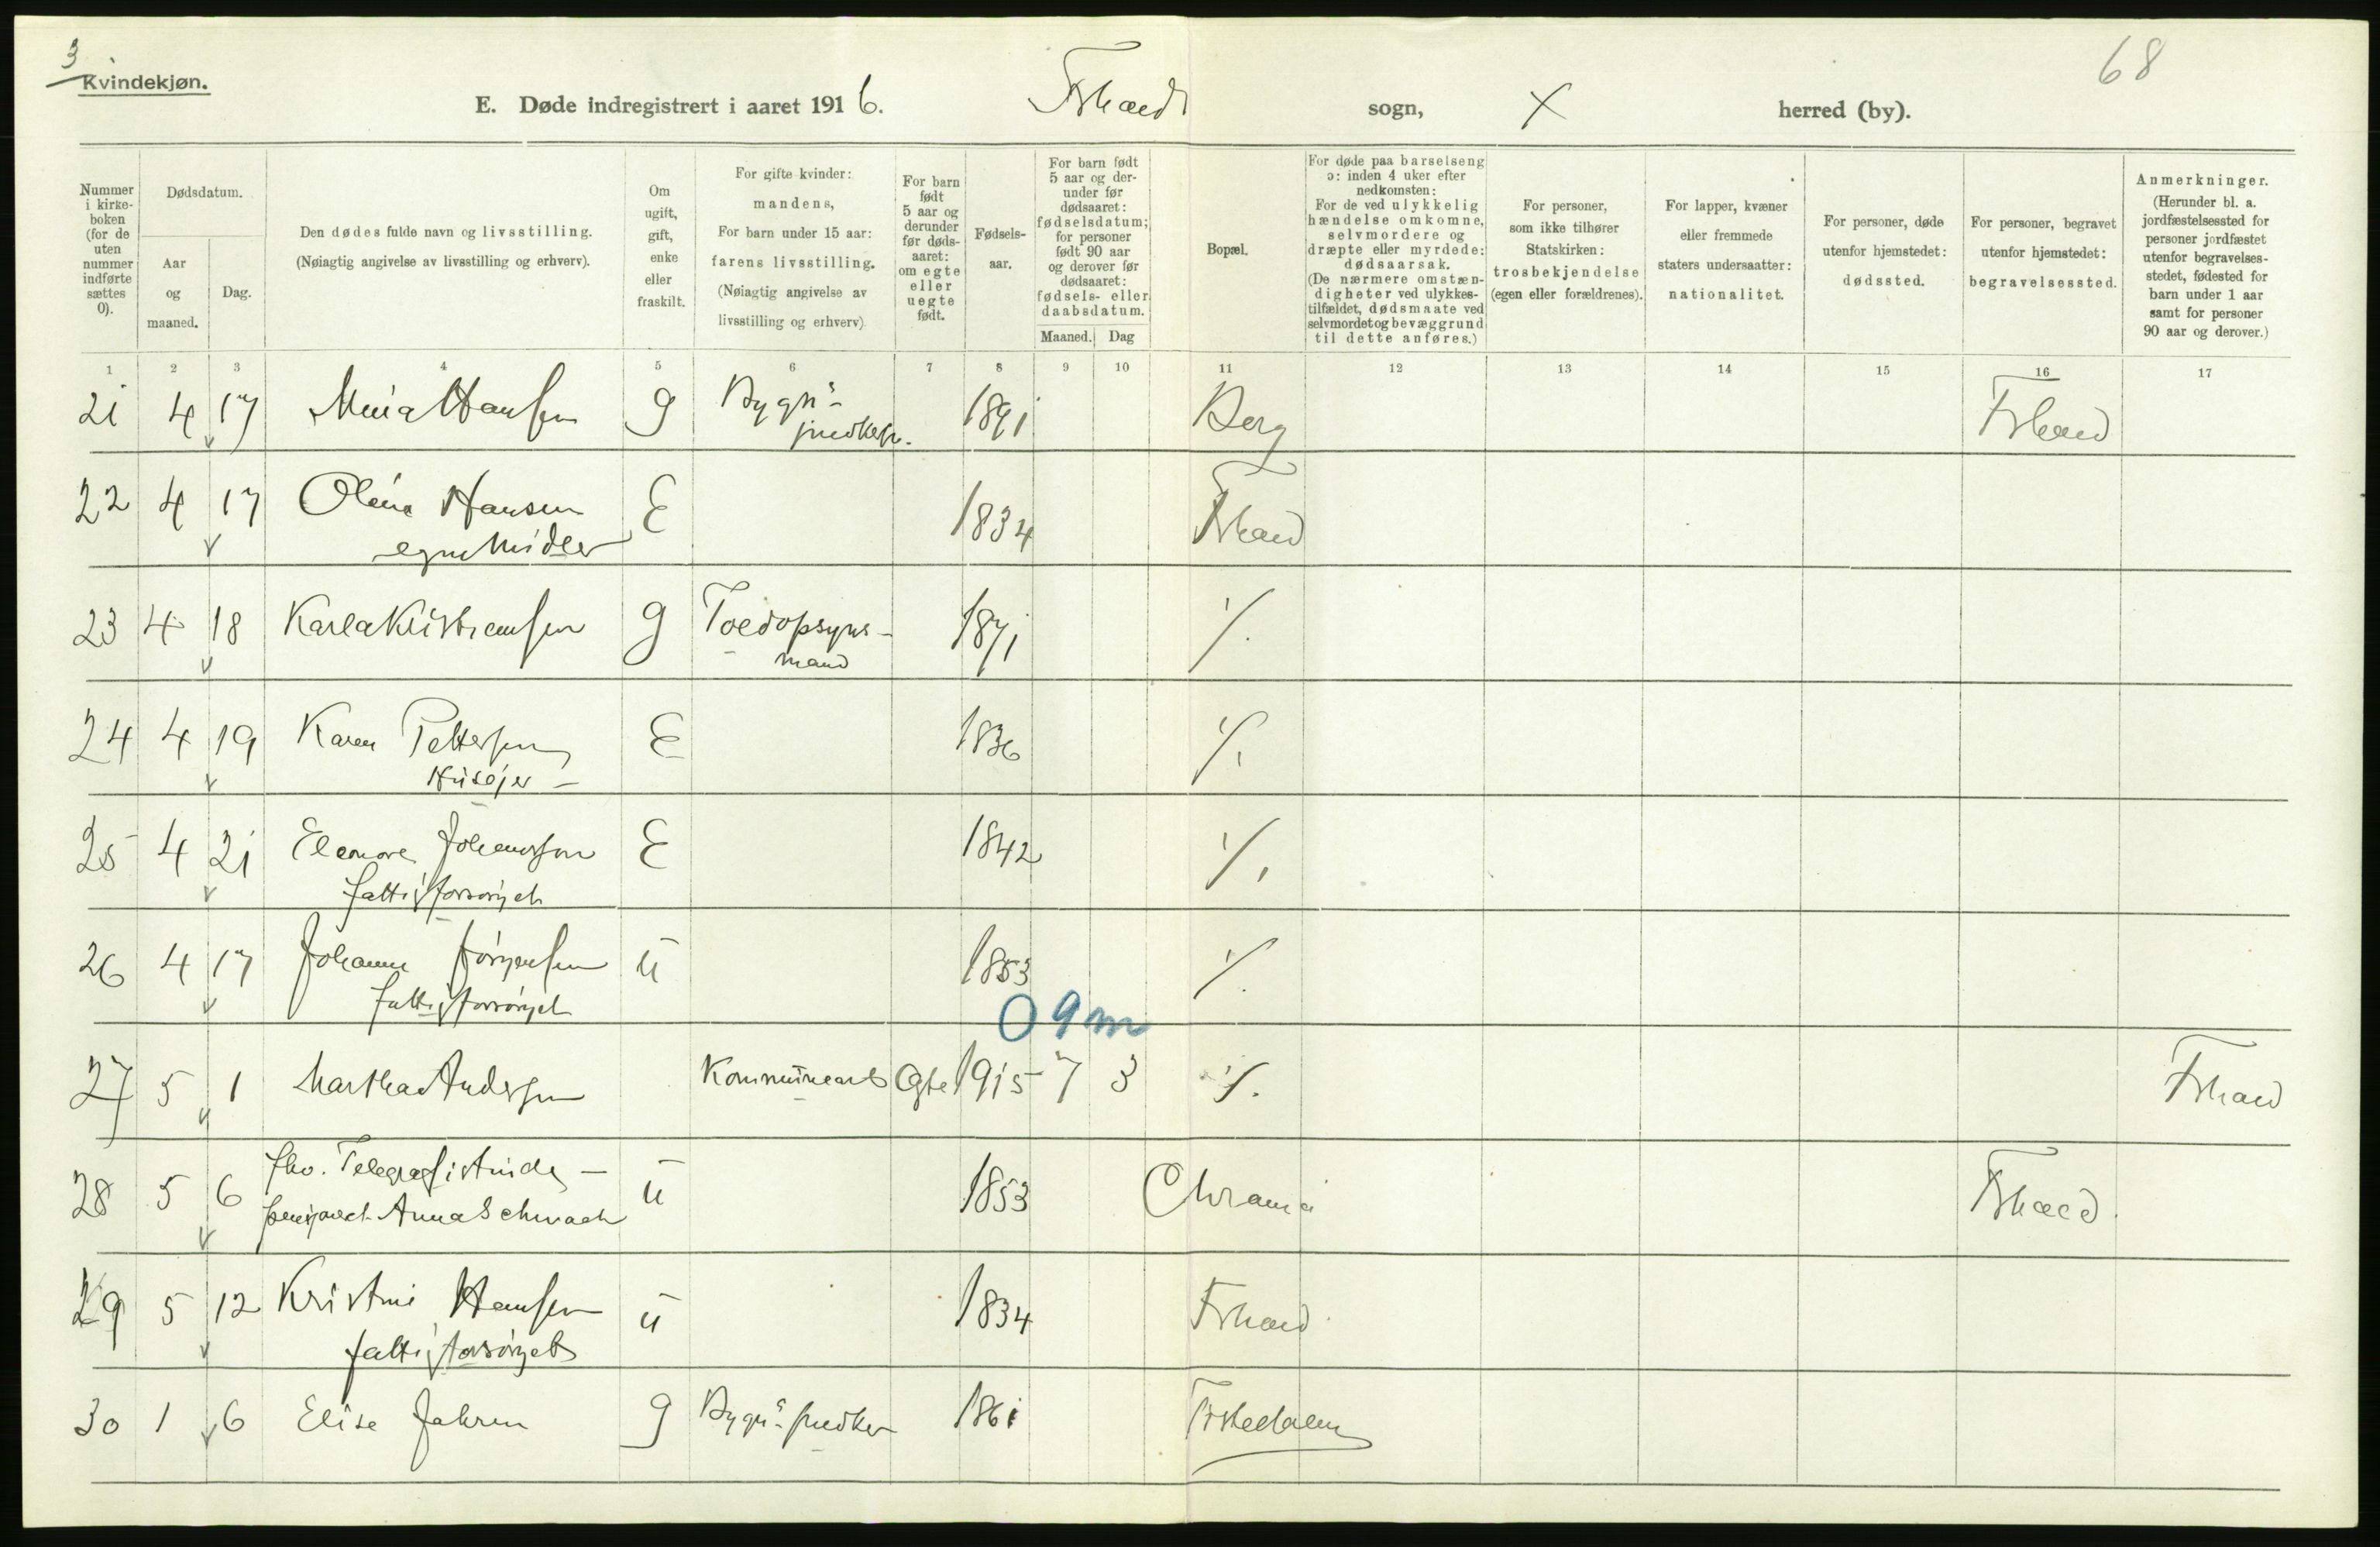 3
Kvindekjøn.
68
E. Døde indregistrert i aaret 1916. Frhald sogn, X herred (by).
Nummer i kirke-boken (for de uten nummer indførte sættes 0).
Dødsdatum.
Aar og maaned.
Dag.
Den dødes fulde navn og livsstilling.
(Nøiagtig angivelse av livsstilling og erhverv).
Om ugift, gift, enke eller fraskilt.
For gifte kvinder: mandens,
For barn under 15 aar: farens livsstilling.
(Nøiagtig angivelse av livsstilling og erhverv)
For barn født 5 aar og derunder før døds-aaret: om egte eller uegte født.
Fødsels-aar.
For barn født 5 aar og der-under før dødsaaret: fødselsdatum; for personer født 90 aar og derover før dødsaaret: fødsels- eller daabsdatum.
Maaned. Dag
Bopæl.
For døde paa barselseng ɔ: inden 4 uker efter nedkomsten:
For de ved ulykkelig hændelse omkomne, selvmordere og dræpte eller myrdede: dødsaarsak.
(De nærmere omstæn-digheter ved ulykkes-tilfældet, dødsmaate ved selvmordet og bevæggrund til dette anføres.)
For personer, som ikke tilhører Statskirken: trosbekjendelse (egen eller forældrenes).
For lapper, kvæner eller fremmede staters undersaatter: nationalitet.
For personer, døde utenfor hjemstedet: dødssted.
For personer, begravet utenfor hjemstedet: begravelsessted.
Anmerkninger.
(Herunder bl. a. jordfæstelsessted for personer jordfæstet utenfor begravelses-stedet, fødested for barn under 1 aar samt for personer 90 aar og derover.)
1 2 3 4 5 6 7 8 9 10 11 12 13 14 15 16 17
21 4 17 Mina Hansen g Bygn.s- snedker. 1891 Berg Frhald
22 4 17 Olina Hansen E 1834 Frhald
egne Midler
23 4 18 Karla Kristiansen g Toldopsyns- 1871 ٪
mand
24 4 19 Karen Pettersen E 1836 ٪
Husejer -
25 4 21 Eleonore Johansson E 1842 ٪
fattigforsørget
26 4 17 Johanne Jørgensen u 1853 ٪
fattigforsørget
0 9 m
27 5 1 Martha Andersen Kommunearb Egte 1915 7 3 ٪ Frhald
28 5 6 fhv. Telegrafistinde - u 1853 Chrania Frhald.
pensjonert Anna Schwach
29 5 12 Kristine Hansen u 1834 Frhald
fattigforsørget
30 1 6 Elise Jahren g Bygn.s- snedker 1861 Tistedalen